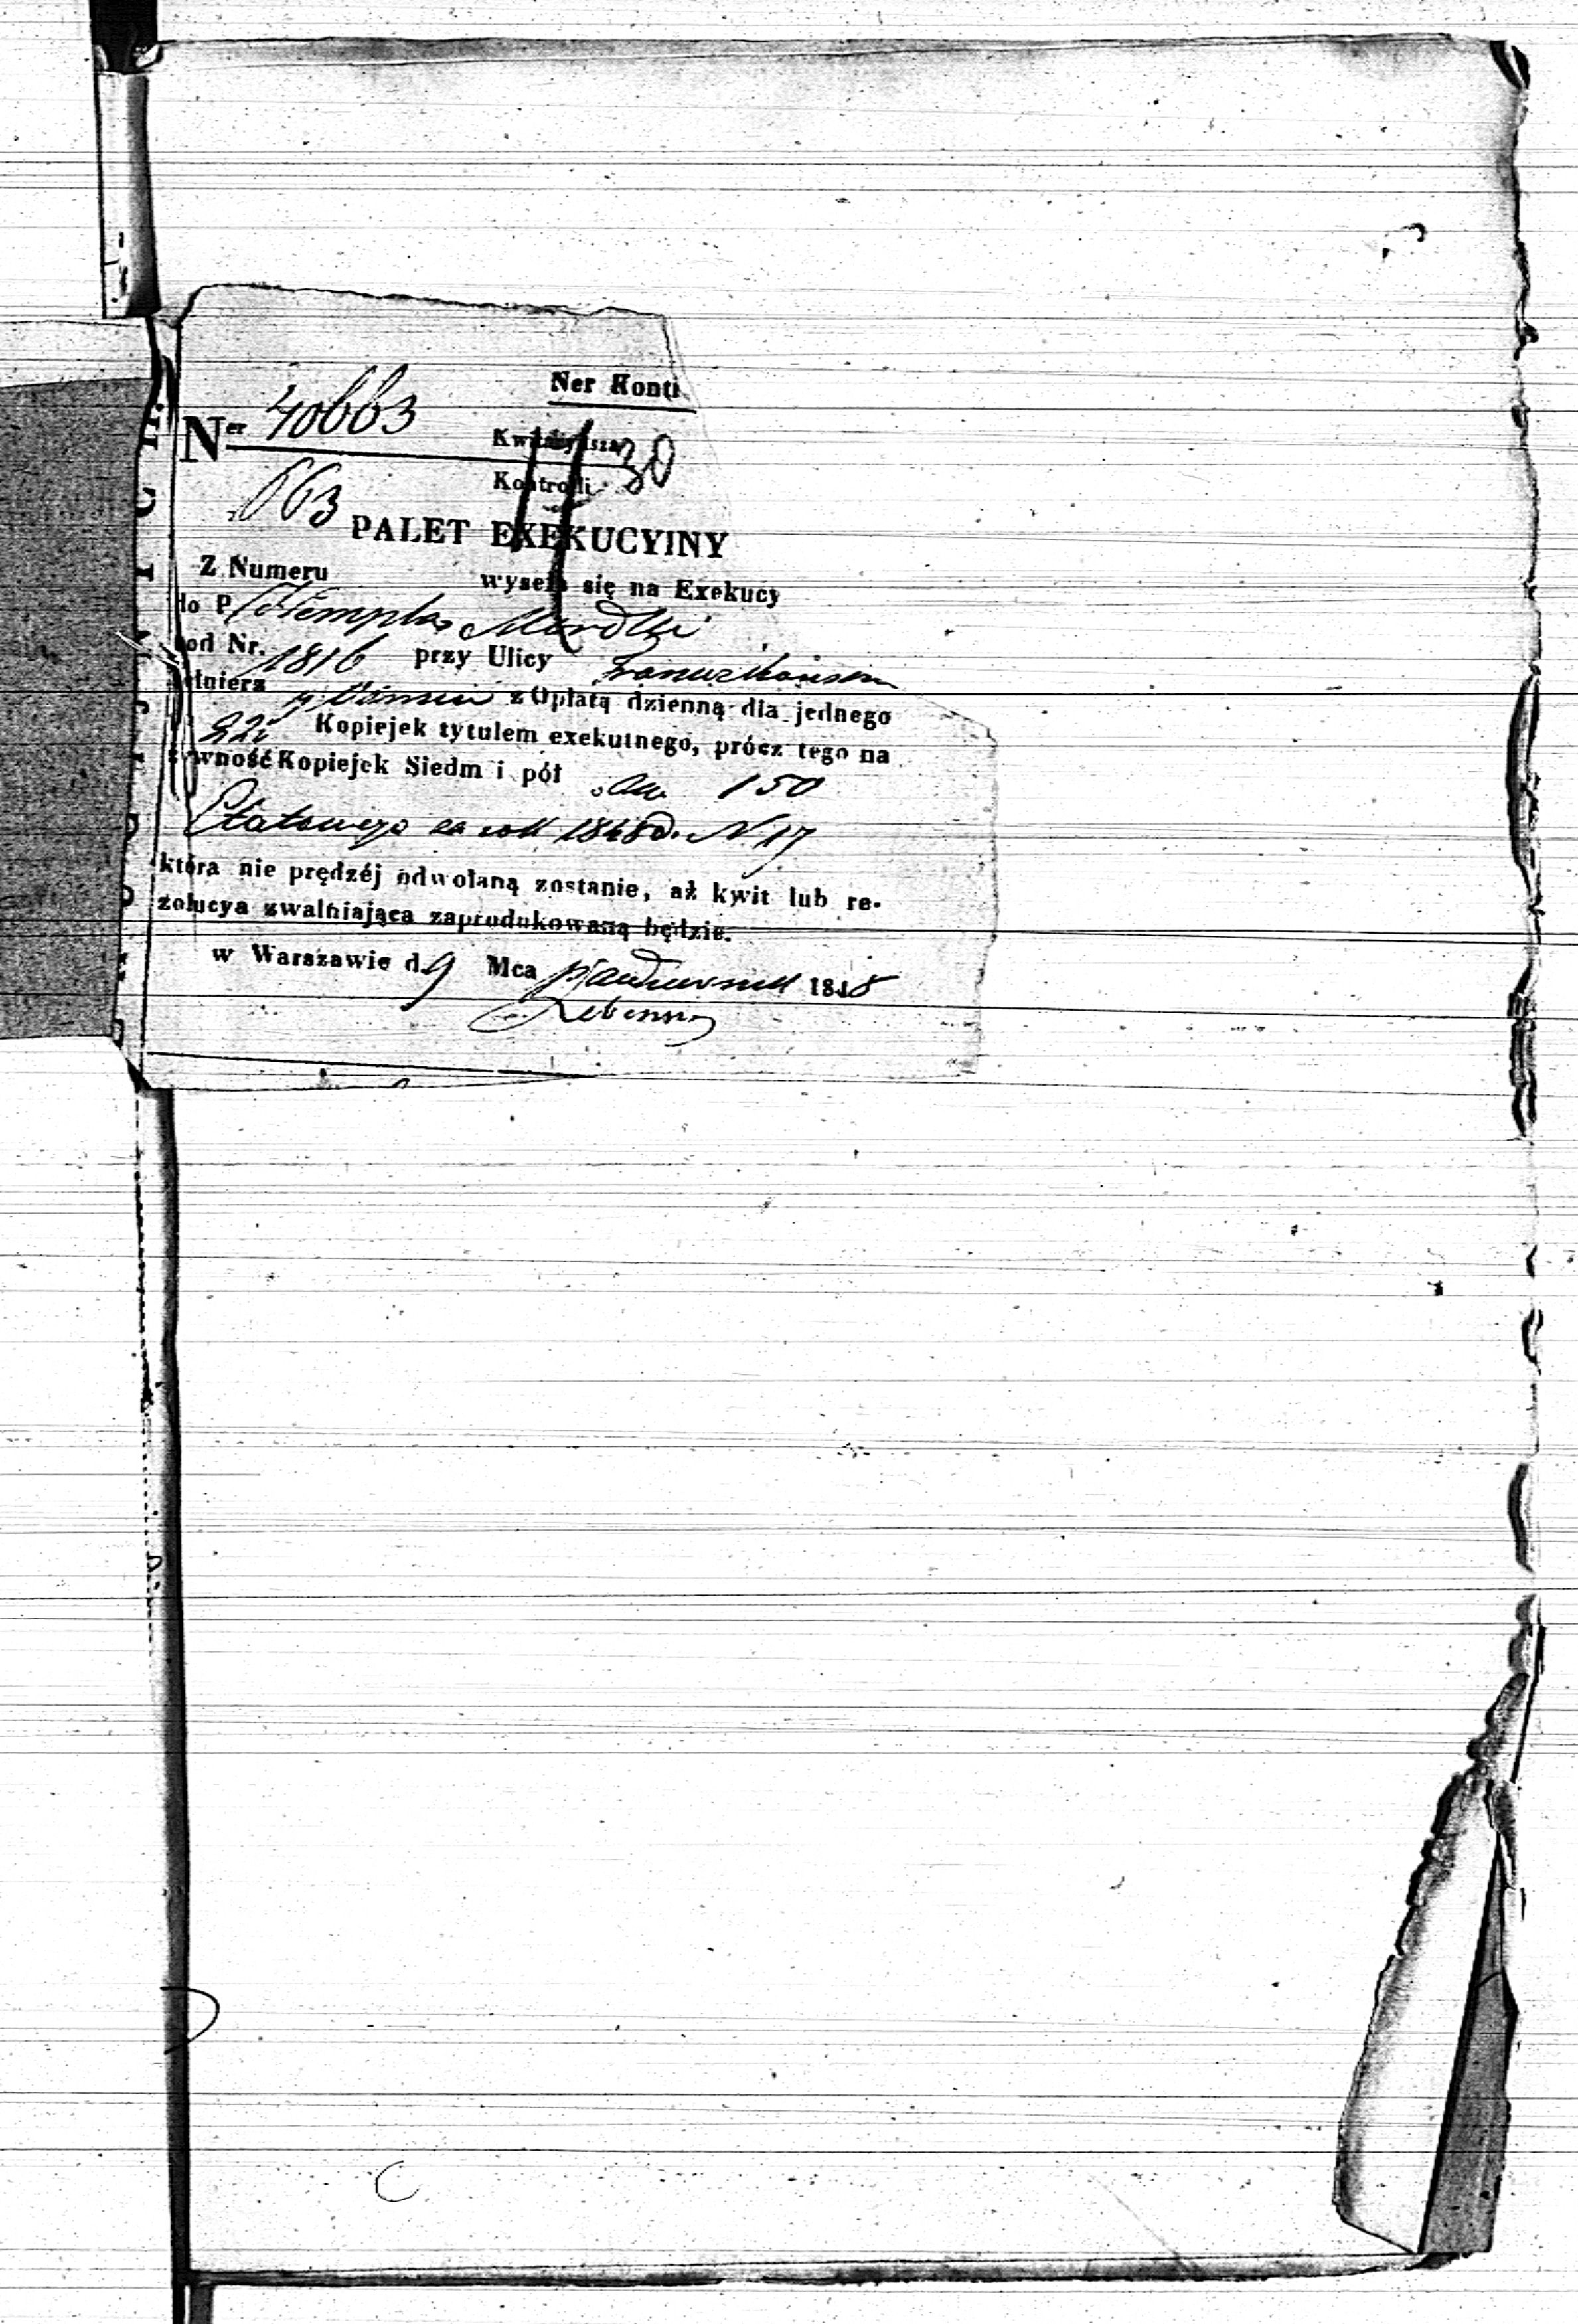 Ner Konti
Ner 40663
Kwitaryusza 30
663 Kontrolli
PALET EXEKUCYINY
Z Numeru wyseła się na Exekucy
do P. Mordki
pod Nr. 1816 przy Ulicy Franciszkańsk
żołnierz z Opłatą dzienną dla jednego
22½ Kopiejek tytulem exekutnego, prócz tego na
żywność Kopiejek Siedm i pół 150
Etatowego za rok 1848 d. N 17
która nie prędzéj odwołaną zostanie, aż kwit lub re-
zolucya zwalniająca zaprodukowaną będzie.
w Warszawie d. 9 Mca Październik 1848